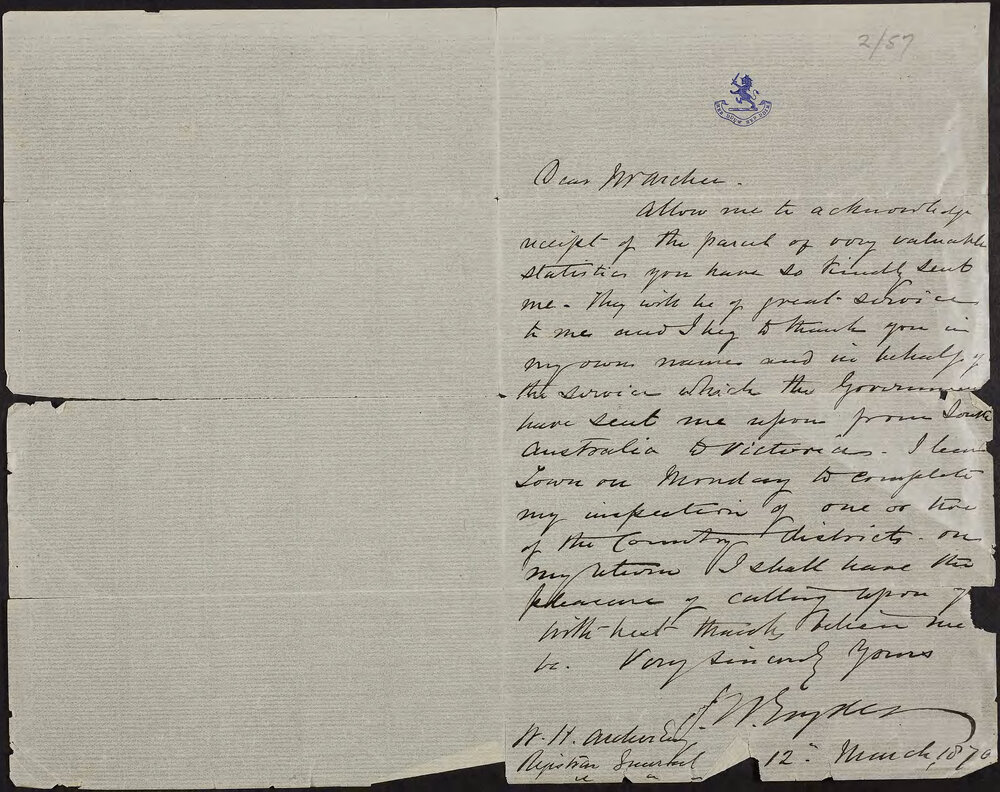 2/57
Dear Mr Archer.
Allow me to acknowledge
receipt of the parcel of very valuable
statistics you have so kindly sent
me - They will be of great service
to me and I beg to thank you in
my own name and in behalf of
the service which the Government
have sent me upon from South
Australia to Victoria - I leave
Town on Monday to complete
my inspection of one or two
of the Country districts - on
my return I shall have the
pleasure of calling upon y
With best thanks believe me
to be. Very sincerely Yours
J. W.
W. H. Archer Esq
Registrar General
12th March, 1870